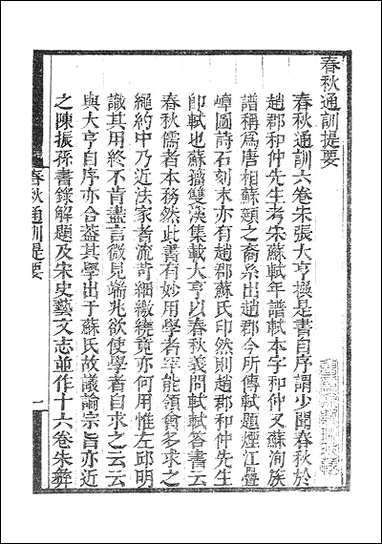 春秋通訓提要
春秋通訓六卷宋張大亨撰是書自序謂少聞春秋於
趙郡和仲先生考宋蘇軾年譜軾本字和仲又蘇洵族
譜稱爲唐相蘇頲之裔系出趙郡今所傳軾題煙江疊
嶂圖詩石刻末亦有趙郡蘇氏印然則趙郡和仲先生
卽軾也蘇籀雙溪集載大亨以春秋義問軾軾答書云
春秋儒者本務然此書有妙用學者罕能領會多求之
繩約中乃近法家者流苛細繳繞竟亦何用惟左邱明
識其用終不肯盡言微見端兆欲使學者自求之云云
與大亨自序亦合蓋其學出于蘇氏故議論宗旨亦近
之陳振孫書錄解題及宋史藝文志並作十六卷朱彝
春秋通訓提要
一